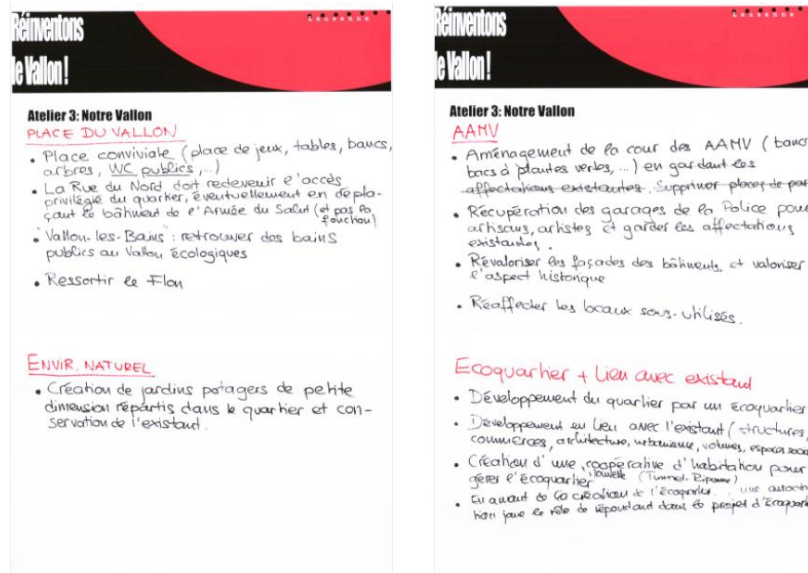 Réinventons
le Vallon !
Lausanne
Atelier 3: Notre Vallon
PLACE DU VALLON
• Place conviviale (place de jeux, tables, bancs,
arbres, WC publics, ..)
• La Rue du Nord doit redevenir l'accès
privilégié du quartier, éventuellement en dépla-
çant le bâtiment de l'Armée du Salut (et pas la
fouchou)
• "Vallon-les-Bains": retrouver des bains
publics au Vallon écologiques
• Ressortir le Flon
ENVIR. NATUREL
• Création de jardins potagers de petite
dimension répartis dans le quartier et con-
servation de l'existant.
Réinventons
le Vallon !
Lausanne
Atelier 3: Notre Vallon
AAMV
• Aménagement de la cour des AAMV (bancs
bacs à plantes vertes, ...) en gardant les
affectations existantes. Supprimer places de par
• Récupération des garages de la Police pour
artisans, artistes et garder les affectations
existantes.
• Revaloriser les façades des bâtiments, et valoriser
l'aspect historique
• Réaffecter les locaux sous-utilisés.
Ecoquartier + Lien avec existant
• Développement du quartier par un écoquartier
• Développement en lien avec l'existant (structures,
commerces, architecture, urbanisme, volumes, espaces socia
• Création d'une coopérative d'habitation pour
gérer l'écoquartier nouvelle (Tunnel-Riponne)
• En amont de la création de l'écoquartier, une associa
tion joue le rôle de répondant dans le projet d'Ecoquart